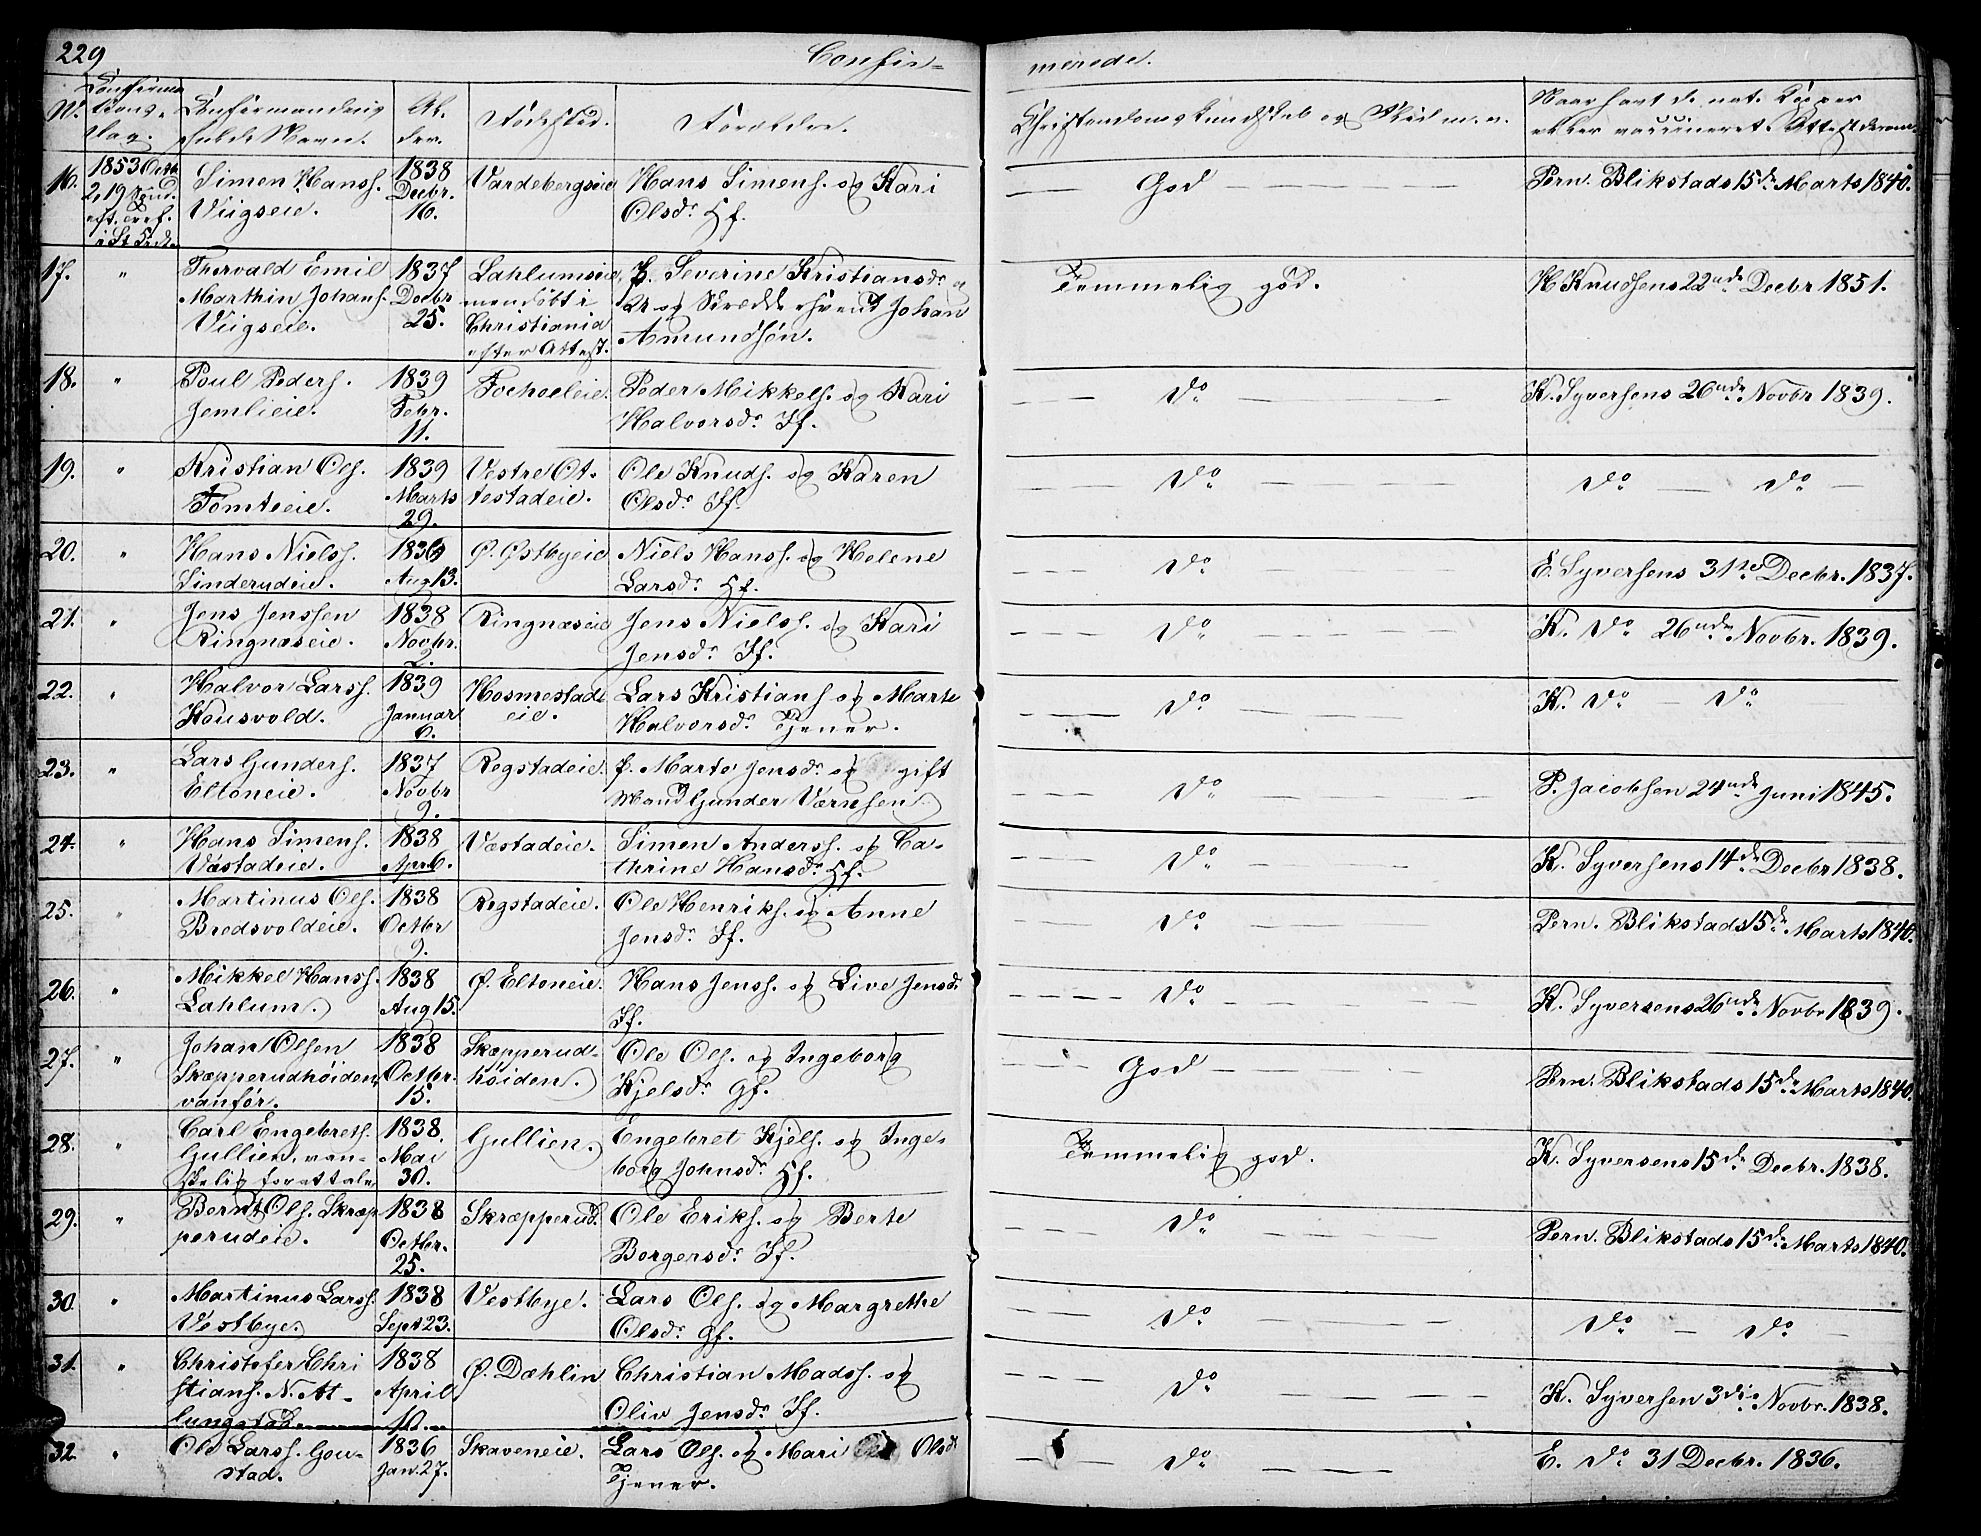 229
Confir-
merede.
N.
Confirma-
tions-
dag.
Confirmandens
fulde Navn.
Al-
der.
Fødested.
Forældre.
Christendomskundskab og Flid m. v.
Naar havt de nat. Kopper
eller vaccineret. Attest derom.
16. 1853 Octb. 2, 19 Sønd. eft. Tref. i St. Kirk. Simen Hanss. Viigseie. 1838 Decbr. 16. Vardebergseie Hans Simens. og Kari Olsdr. Hf. God Pern. Blikstads 15de Marts 1840.
17. " Thorvald Emil Marthin Johans. Viigseie. 1837 Decbr 25. Lahlumseie, men døbt i Christiania efter Attest. P. Severine Kristiansdr og Skrædder Svend Johan Amundsøn. Temmelig god. H. Knudsens 22nde Decbr 1851.
18. " Poul Peders. Jemlieie. 1839 Febr. 11. Fochoeleie. Peder Mikkels. og Kari Halvorsdr. If. Do K. Syversens 26nde Novbr 1839.
19. " Kristian Ols. Tomteeie. 1839 Marts 29. Vestre Ottestadeie. Ole Knuds. og Karen Olsdr. If. Do Do — Do —
20. " Hans Nielss. Sinderudeie. 1836 Aug 13. Ø. Østbyeie Niels Hanss. og Helene Larsdr. Hf. Do E. Syversens 31te Decbr. 1837.
21. " Jens Jenssen Ringnæseie. 1838 Novbr. 2. Ringnæseie Jens Nielss. og Kari Jensdr. If. Do K. Do 26nde Novbr. 1839.
22. " Halvor Larss. Kousvold. 1839 Januar 6. Hosmestadeie. Lars Kristians og Marte Halvorsdr. Tjener. Do K. Do — Do
23. " Lars Gunders. Eltoneie. 1837 Novbr 9. Rogstadeie. P. Marte Jensdr. og gift Mand GunderVærnsen. Do P. Jacobsen 24nde Juni 1845.
24. " Hans Simens. Væstadeie. 1838 Apr 6. Væstadeie. Simen Anderss. og Cathrine Hansdr. Hf. Do K. Syversens 14de Decbr 1838.
25. " Martinus Ols. Bredsvoldeie. 1838 Octbr 9. Rogstadeie. Ole Henriks. og Anne Jensdr. If. Do Pern. Blikstads 15de Marts 1840.
26. " Mikkel Hanss. Lahlum. 1838 Aug 15. Ø. Eltoneie. Hans Jenss. og Live Jensdr. If. Do K. Syversens 26nde Novbr 1839.
27. " Johan Olsen Skæpperudhøiden, vanfør. 1838 Octbr. 15. Skæpperudhøiden. Ole Ols. og Ingeborg Kjelsdr. Gf. God Pern. Blikstads 15de Marts 1840.
28. " Carl Engebrets. Gullien, vanskelig for at tale. 1838. Mai 30. Gullien. Engebret Kjels. og Ingeborg Johnsdr. Hf. Temmelig god. K. Syversens 15de Decbr. 1838.
29. " Bernt Ols. Skræpperudeie. 1838 Octbr. 25. Skræpperud. Ole Eriks. og Berte Borgersdr. If. Do Pern. Blikstads 15de Marts 1840.
30. " Martinus Larss. Vestbye. 1838 Sept 23. Vestbye. Lars Ols. og Margrethe Olsdr. Gf. Do Do — Do —
31. " Christofer Christians. N. Atlungstad. 1838 April 10. Ø. Dæhlin Christian Madss. og Oliv Jensdr. If. Do K. Syversen 3die Novbr. 1838.
32. " Ole Larss. Goustad. 1836 Jan. 27. Skaveneie. Lars Ols. og Mari Olsdr Tjener. Do E. Do 31 Decbr. 1836.